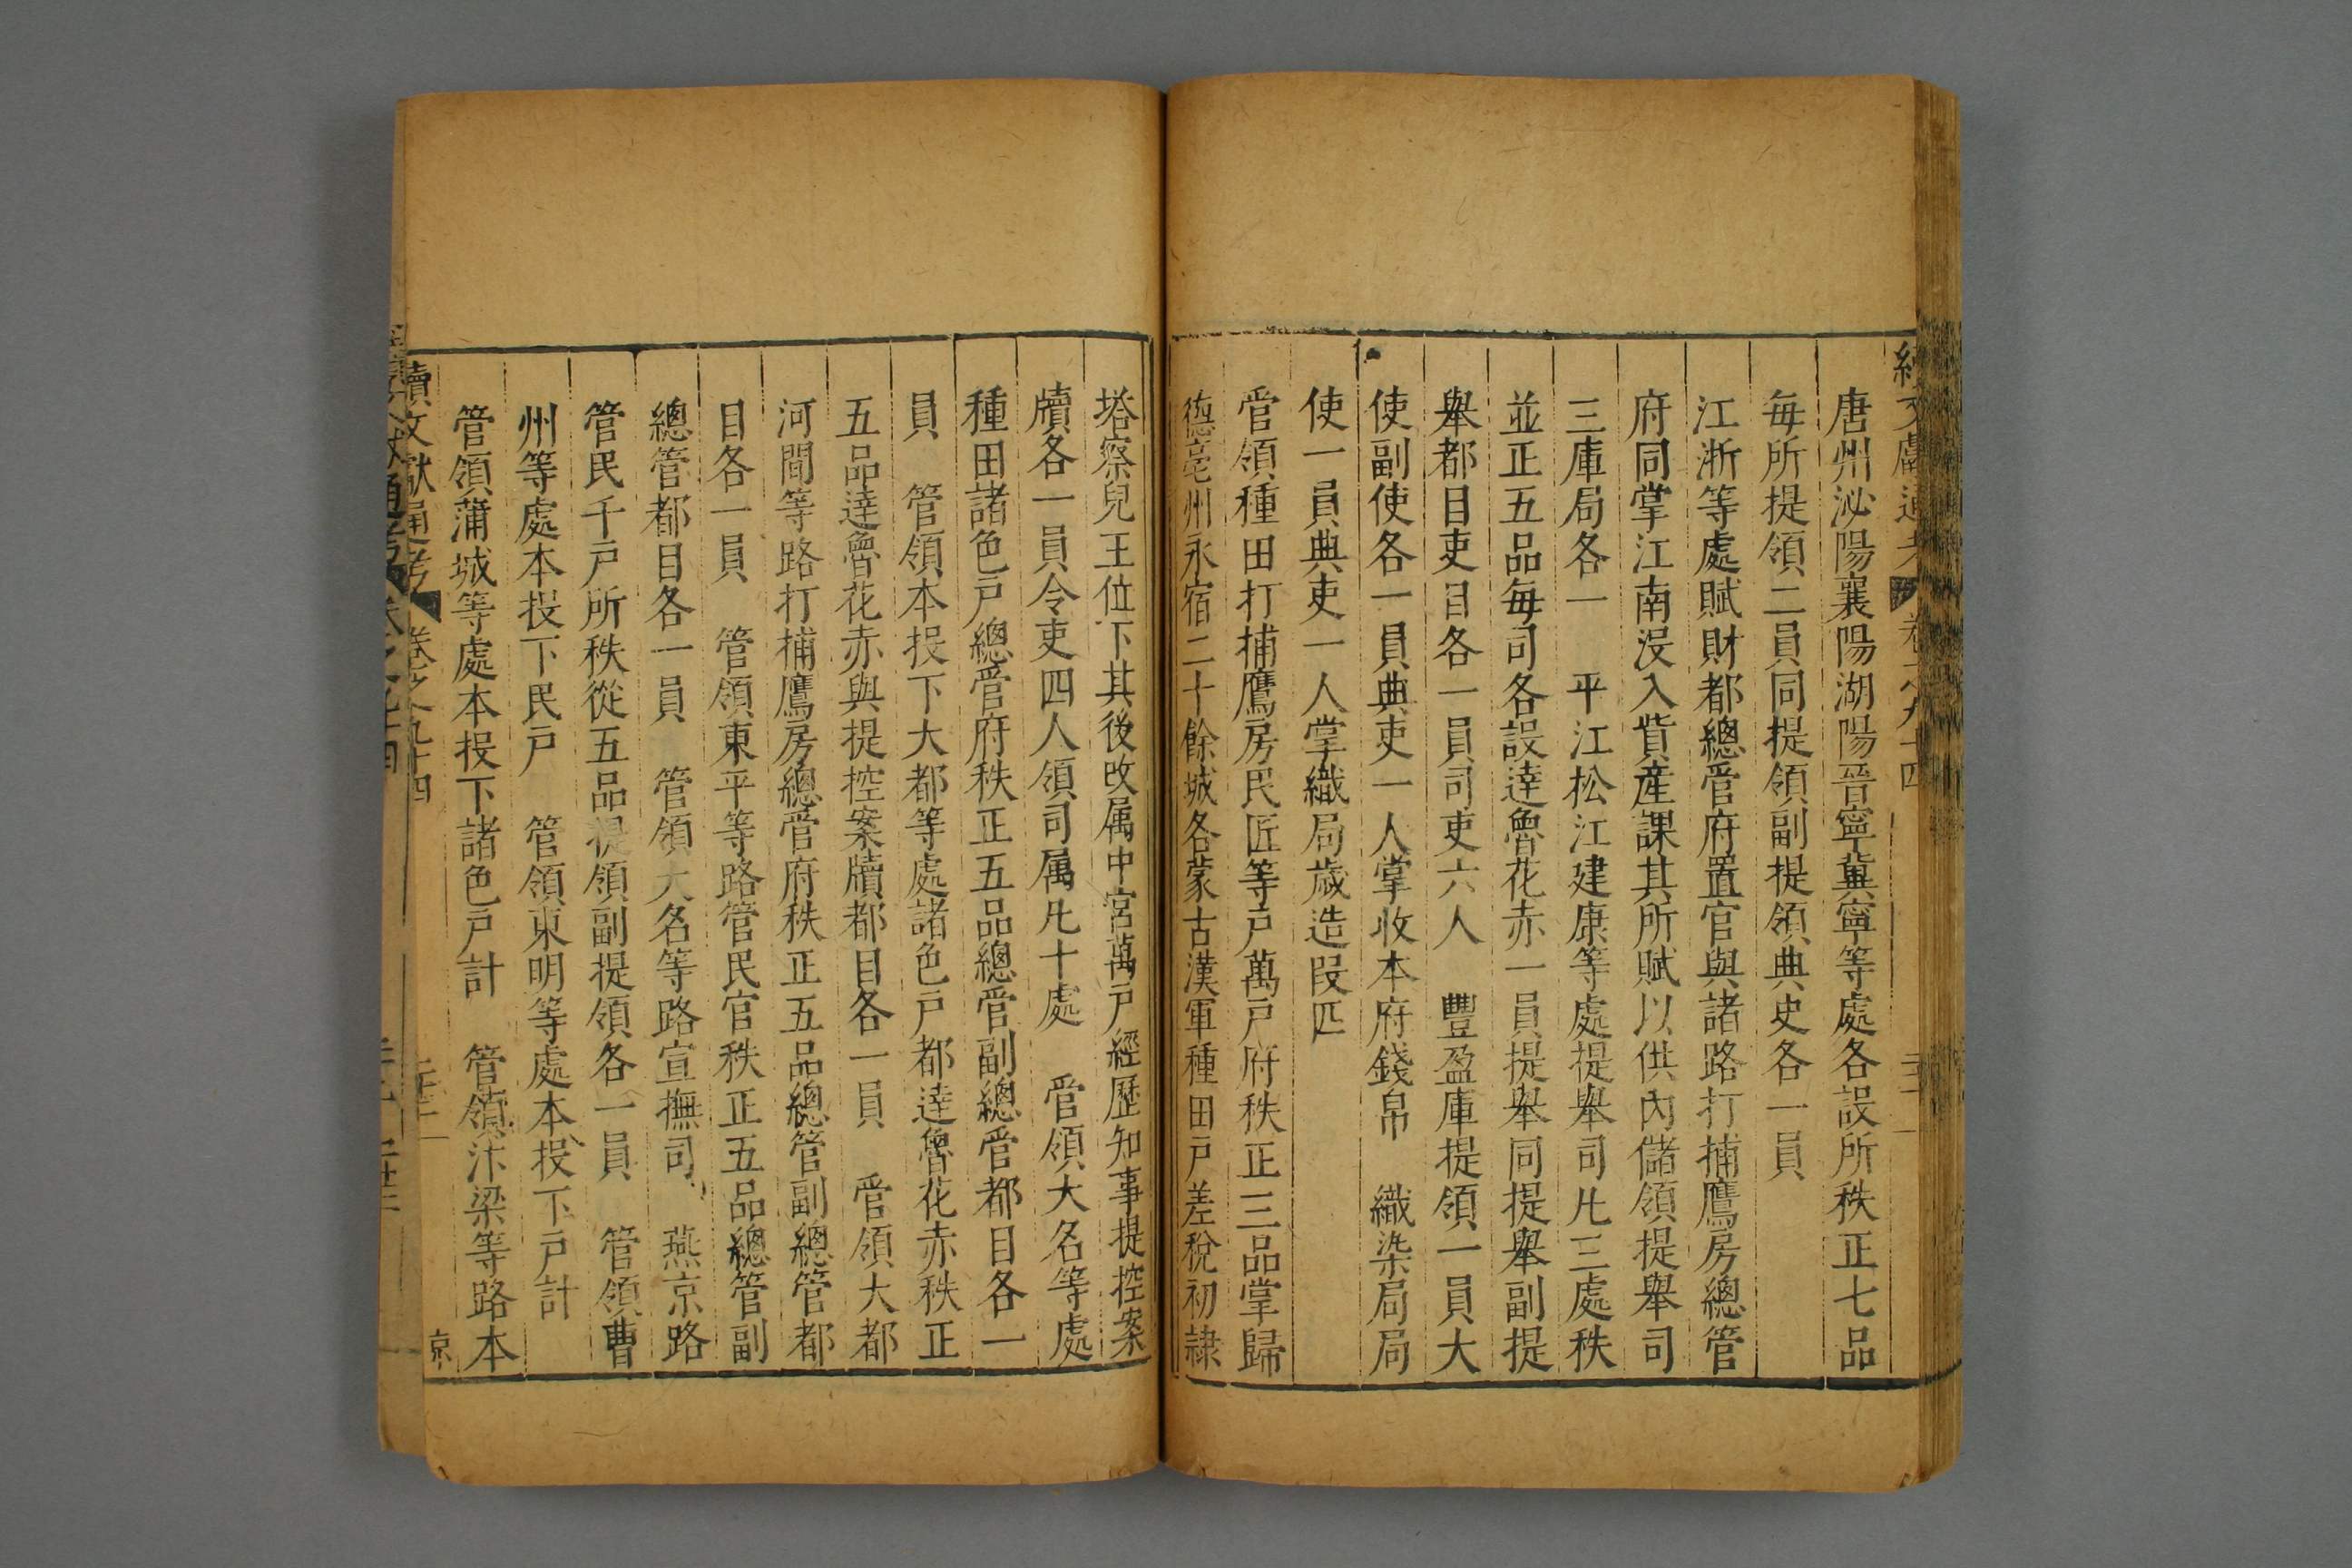 唐州泌陽襄陽湖陽晉寧冀寧等處各設所秩正七品
每所提領二員同提領副提領典史各一員
江淅等處賦財都總管府置官與諸路打捕鷹房總管
府同掌江南沒入貲產課其所賦以供內儲領提舉司
三庫局各一　平江松江建康等處提舉司凡三處秩
並正五品每司各設達魯花赤一員提舉同提舉副提
舉都目吏目各一員司吏六人　豐盈庫提領一員大
使副使各一員典吏一人掌收本府錢帛　織染局局
使一員典吏一人掌織局歲造段匹
管領種田打捕鷹房民匠等戶萬戶府秩正三品掌歸
德亳州永宿二十餘城各蒙古漢軍種田戶差稅初隸
塔察兒王位下其後改属中宮萬戶經歷知事提控案
牘各一員令吏四人領司属凡十處　管領大名等處
種田諸色戶總管府秩正五品總管副總管都目各一
員　管領本投下大都等處諸色戶都達魯花赤秩正
五品達魯花赤與提控案牘都目各一員　管領大都
河間等路打捕鷹房總管府秩正五品總管副總管都
目各一員　管領東平等路管民官秩正五品總管副
總管都目各一員　管領大名等路宣撫司　燕京路
管民千戶所秩從五品提領副提領各一員　管領曹
州等處本投下民戶　管領東明等處本投下戶計
管領蒲城等處本投下諸色戶計　管領汴梁等路本
續文獻通考　卷之九十四
京